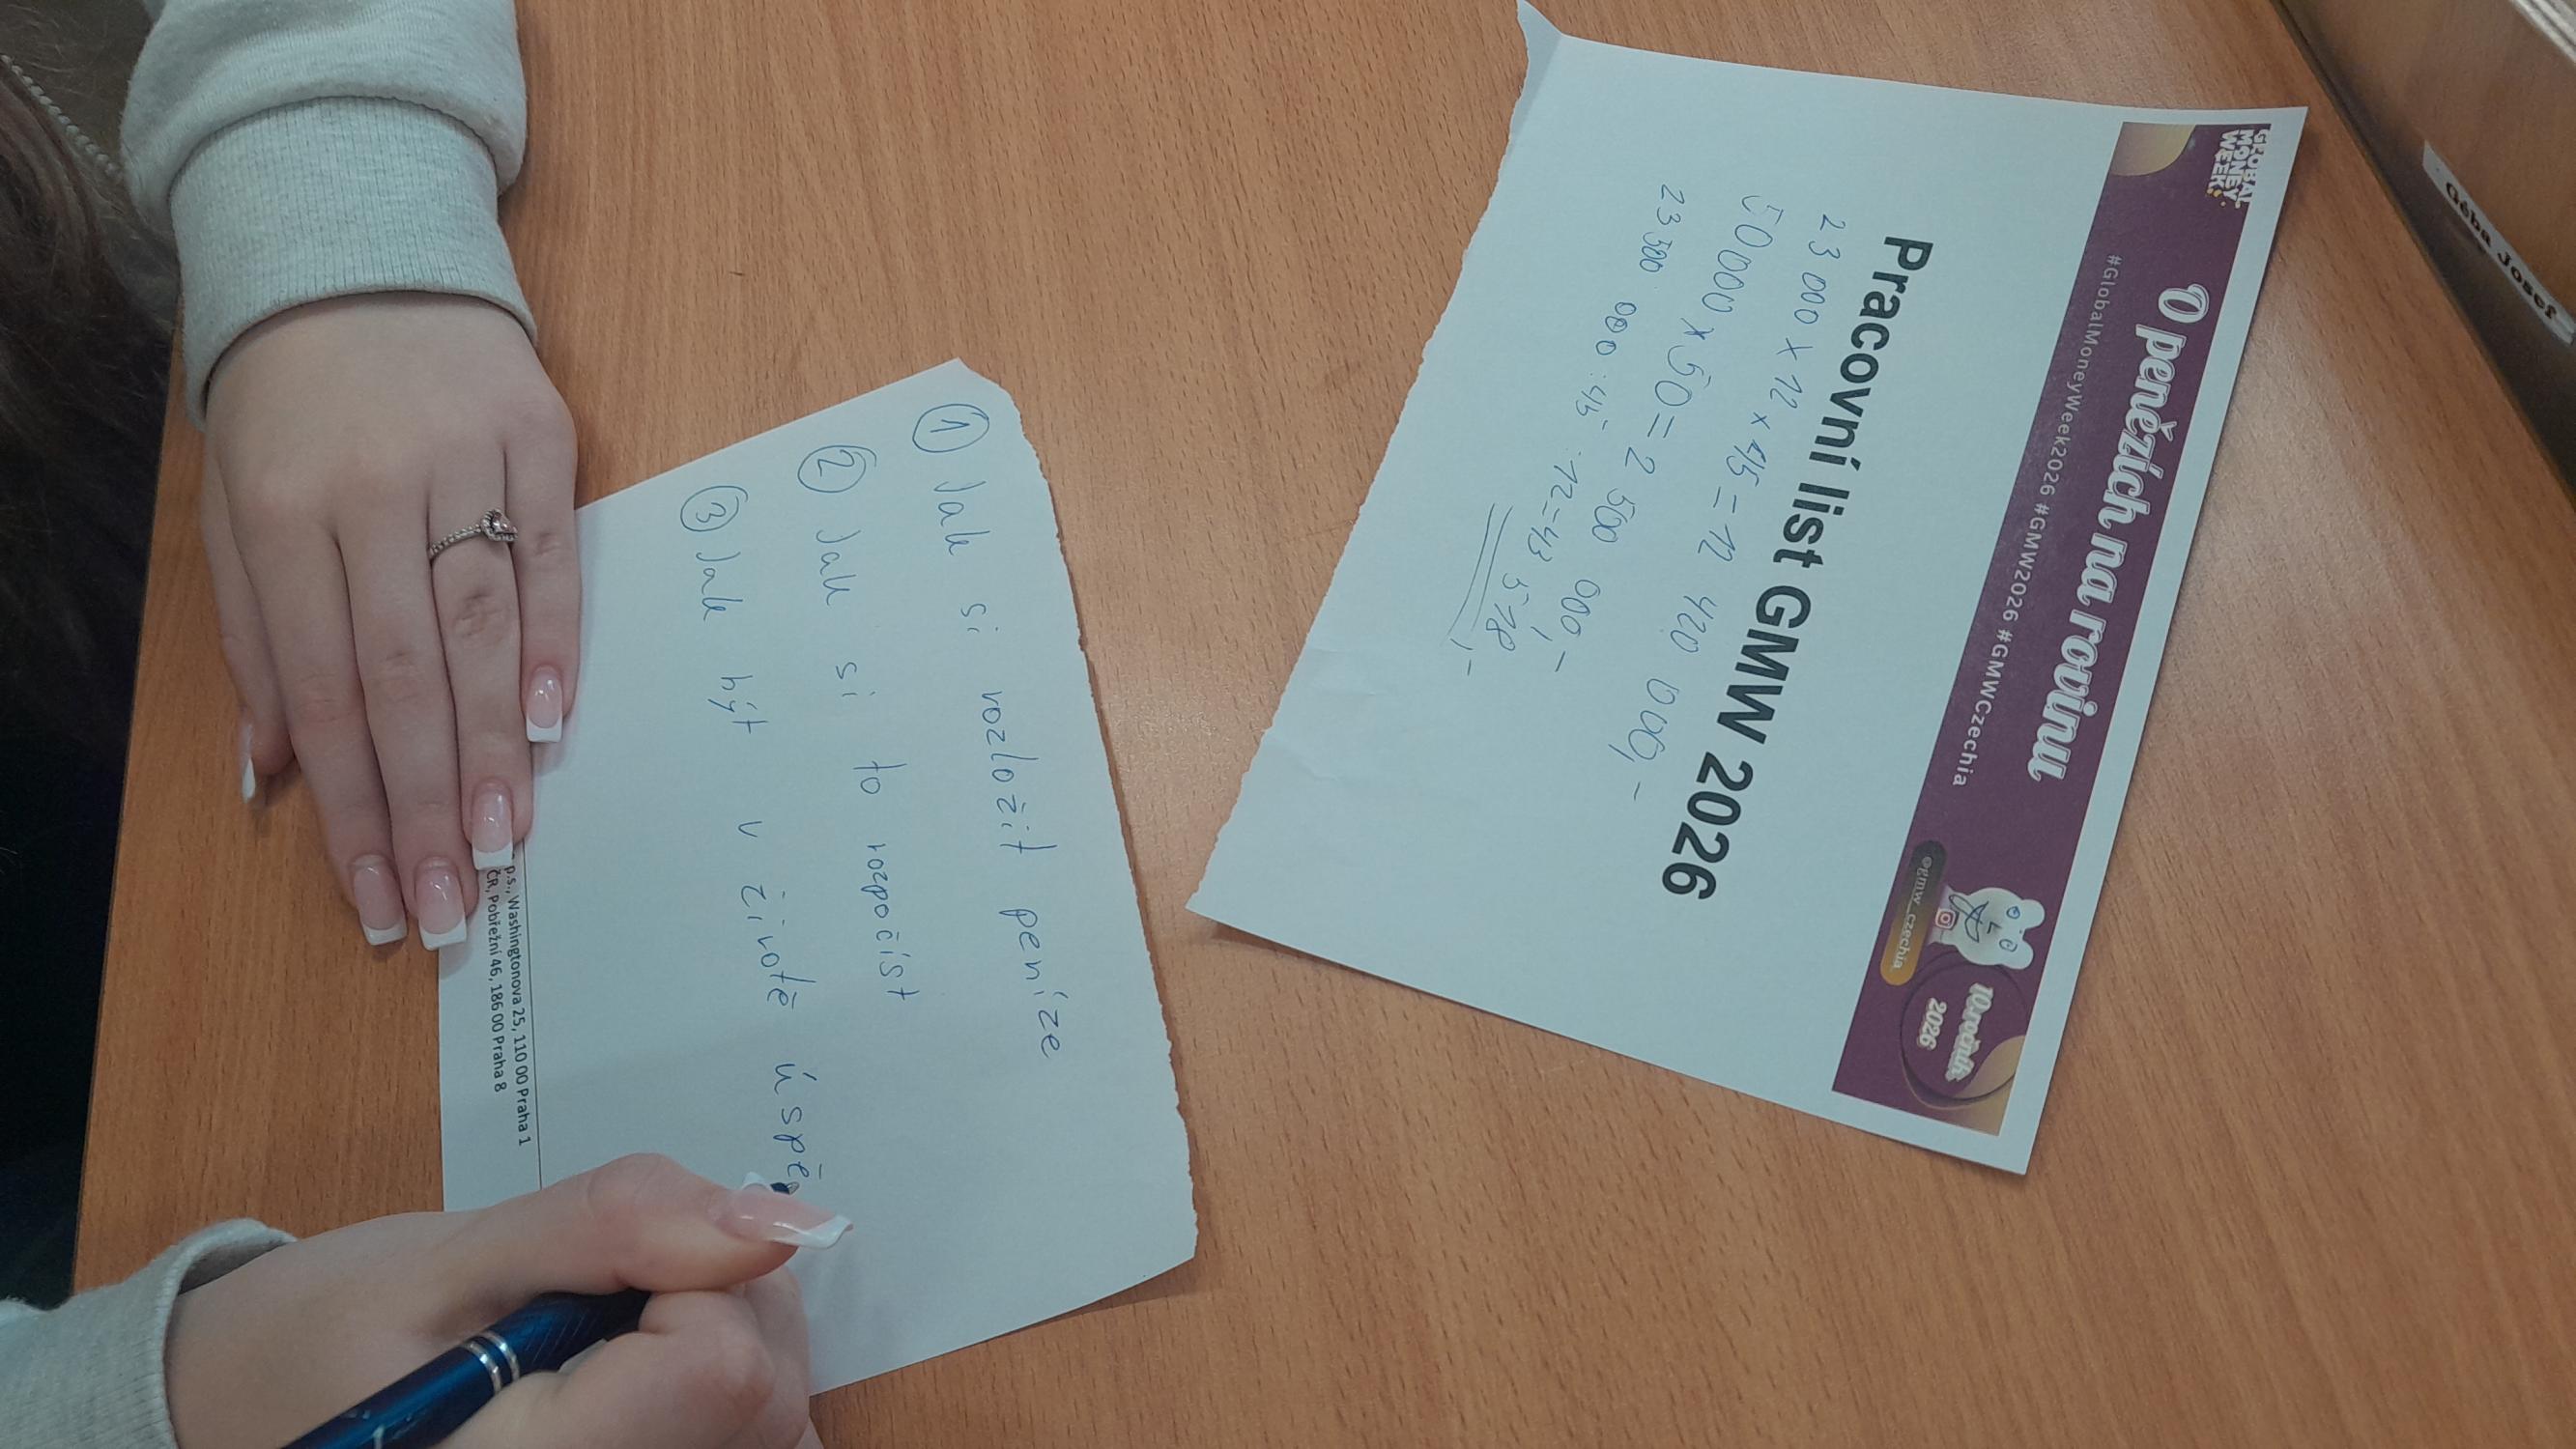 GLOBAL
MONEY
WEEK
O penězích na rovinu
#GlobalMoneyWeek2026 #GMW2026 #GMWCzechia
@gmw_czechia
10. ročník
2026
Pracovní list GMW 2026
23 000 x 12 x 45 = 12 420 000,-
50 000 x 50 = 2 500 000,-
23 500 000 : 45 : 12 = 43 518,-
① Jak si rozložit peníze
② Jak si to rozpočíst
③ Jak být v životě úspě
p.s., Washingtonova 25, 110 00 Praha 1
ČR, Pobřežní 46, 186 00 Praha 8
Géba Josef